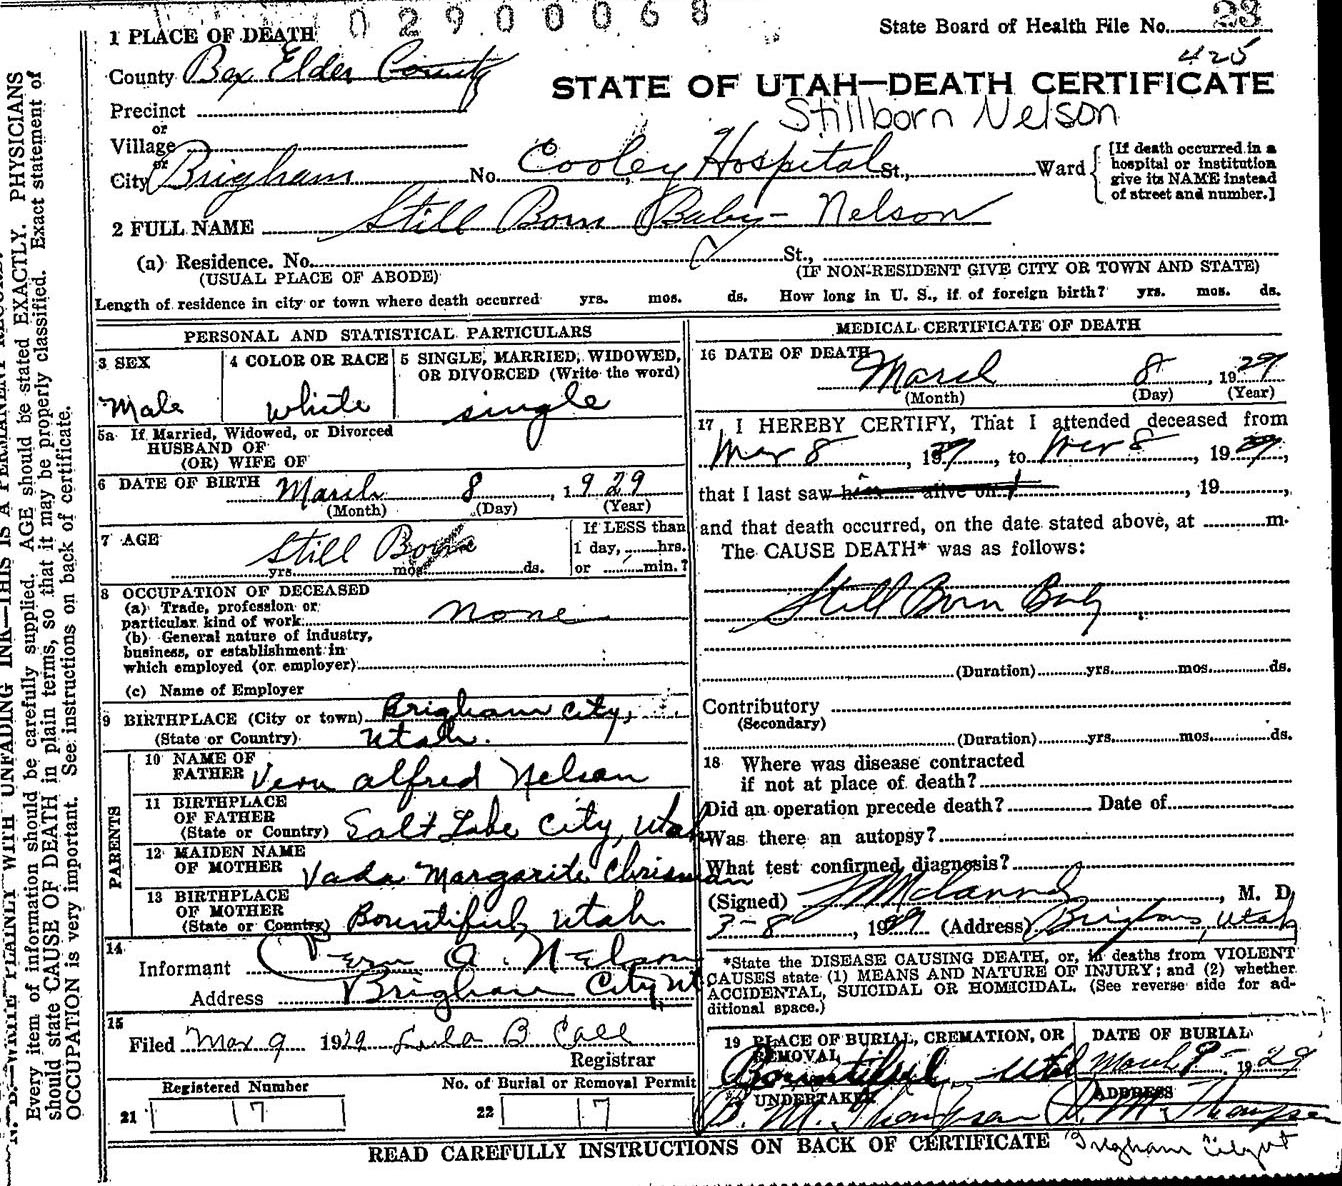 02900068
State Board of Health File No. 23
425
1 PLACE OF DEATH
County Box Elder County
STATE OF UTAH—DEATH CERTIFICATE
Stillborn Nelson
Precinct
or
Village
or
City Brigham No. Cooley Hospital St., Ward
[If death occurred in a
hospital or institution
give its NAME instead
of street and number.]
2 FULL NAME Still Born Baby- Nelson
(a) Residence. No. St.,
(USUAL PLACE OF ABODE) (IF NON-RESIDENT GIVE CITY OR TOWN AND STATE)
Length of residence in city or town where death occurred yrs. mos. ds. How long in U. S., if of foreign birth? yrs. mos. ds.
PERSONAL AND STATISTICAL PARTICULARS
3 SEX
Male
4 COLOR OR RACE
White
5 SINGLE, MARRIED, WIDOWED,
OR DIVORCED (Write the word)
single
5a If Married, Widowed, or Divorced
HUSBAND OF
(OR) WIFE OF
6 DATE OF BIRTH March 8, 1929
(Month) (Day) (Year)
7 AGE Still Born
yrs. mos. ds.
If LESS than
1 day, hrs.
or min.?
8 OCCUPATION OF DECEASED
(a) Trade, profession or
particular kind of work none
(b) General nature of industry,
business, or establishment in
which employed (or employer)
(c) Name of Employer
9 BIRTHPLACE (City or town) Brigham City,
(State or Country) Utah.
PARENTS
10 NAME OF
FATHER Vern Alfred Nelson
11 BIRTHPLACE
OF FATHER
(State or Country) Salt Lake City, Utah
12 MAIDEN NAME
OF MOTHER Vada Margarite Chrisman
13 BIRTHPLACE
OF MOTHER
(State or Country) Bountiful, Utah
14
Informant Vern A. Nelson
Address Brigham City, Ut
15
Filed Mar 9 1929 Lula B Call
Registrar
Registered Number
21 17
No. of Burial or Removal Permit
22 17
MEDICAL CERTIFICATE OF DEATH
16 DATE OF DEATH
March 8, 1929
(Month) (Day) (Year)
17 I HEREBY CERTIFY, That I attended deceased from
Mar 8, 1929, to Mar 8 1929,
that I last saw him alive on, 19,
and that death occurred, on the date stated above, at m.
The CAUSE DEATH* was as follows:
Still Born Baby
(Duration) yrs. mos. ds.
Contributory
(Secondary)
(Duration) yrs. mos. ds.
18 Where was disease contracted
if not at place of death?
Did an operation precede death? Date of
Was there an autopsy?
What test confirmed diagnosis?
(Signed) M. D.
3-8, 1929 (Address) Brigham, Utah
*State the DISEASE CAUSING DEATH, or, in deaths from VIOLENT
CAUSES state (1) MEANS AND NATURE OF INJURY; and (2) whether
ACCIDENTAL, SUICIDAL OR HOMICIDAL. (See reverse side for ad-
ditional space.)
19 PLACE OF BURIAL, CREMATION, OR
REMOVAL
Bountiful Utah
DATE OF BURIAL
March 9 1929
UNDERTAKER
B. M. Thompson
ADDRESS
Brigham City Ut
READ CAREFULLY INSTRUCTIONS ON BACK OF CERTIFICATE
N. B.—WRITE PLAINLY WITH UNFADING INK—THIS IS A PERMANENT RECORD.
Every item of information should be carefully supplied. AGE should be stated EXACTLY. PHYSICIANS
should state CAUSE OF DEATH in plain terms, so that it may be properly classified. Exact statement of
OCCUPATION is very important. See instructions on back of certificate.